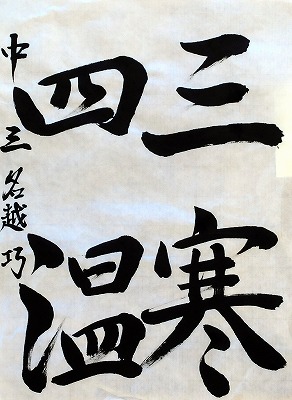 三寒
四温
中三 名越巧